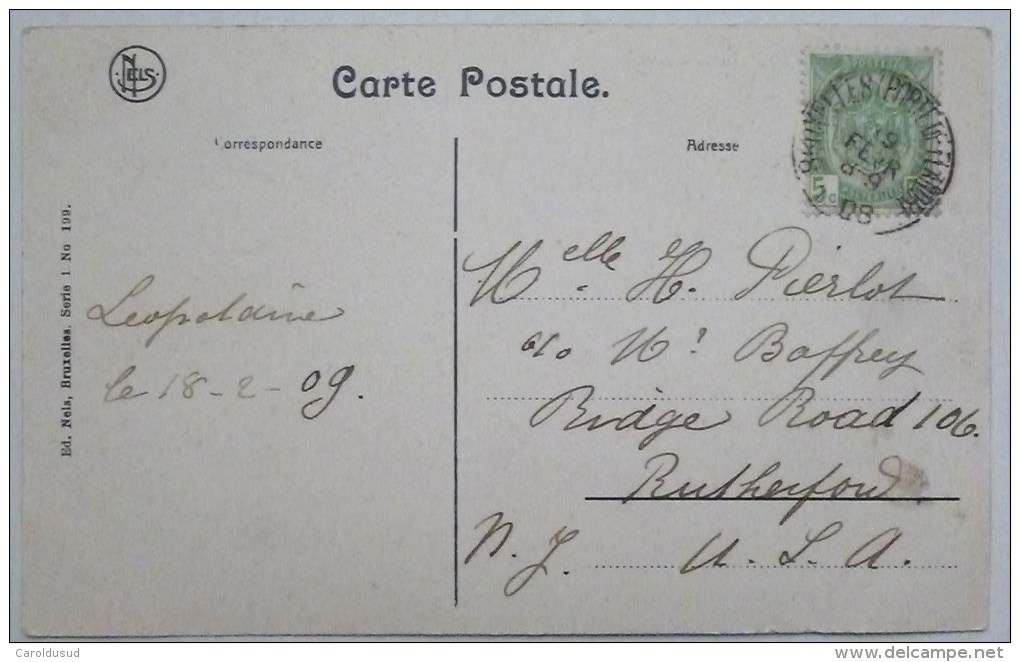 NELS
Carte Postale.
Correspondance
Adresse
BRUXELLES (PORTE DE FLANDRE)
19
FEVR
8-9
08
5c
Ed. Nels, Bruxelles. Serie 1 No 199.
Leopoldine
le 18-2-09.
Melle H. Pierlot
c/o Mr Baffrey
Ridge Road 106.
Rutherford
N. J. U. S. A.
delcampe.net
Caroldusud